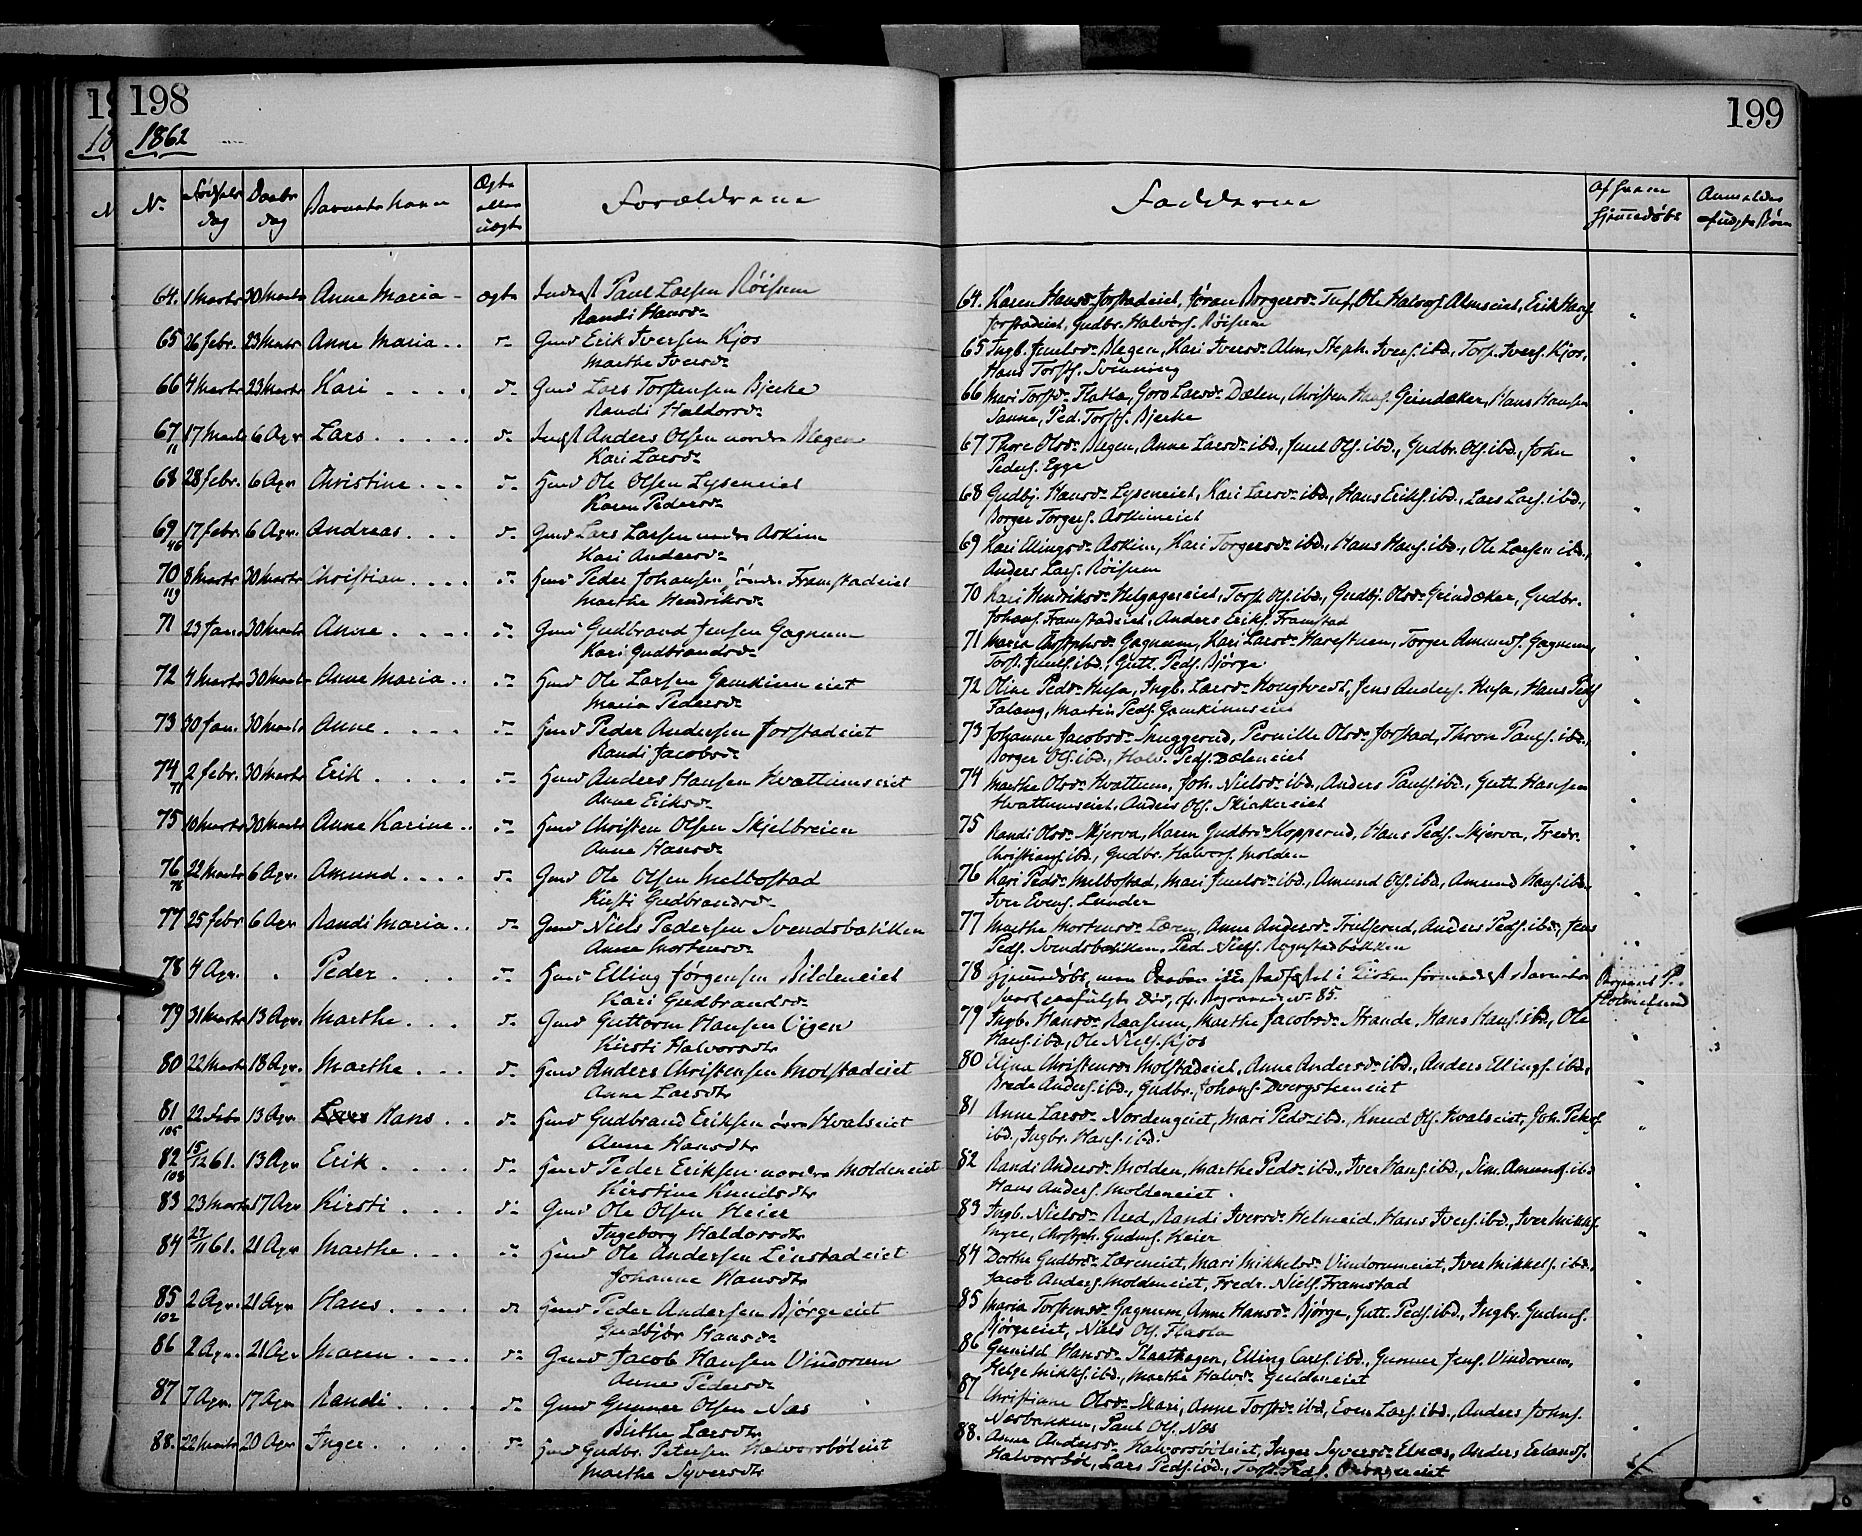 198
1862
199
No
Fødsels Dag
Daabs Dag
Barnets Navn
Ægte eller uægte
Forældrene
Fadderne
Af hvem hjemmedøbt
Anmeldte
64. 1 Marts 30 Marts Anne Maria - ægte Inderst Paul Larsen Røisum
Randi Hansd.
65 26 Febr. 23 Marts Anne Maria . . d. Gmd Erik Iversen Kjos
Marthe Iversd.
66 4 Marts 23 Marts Kari . . . . d. Gmd Lars Torstensen Bjerke
Randi Haldorsd.
67 17 Marts 6 Apr Lars . . . . . d. Inst Anders Olsen nordre Blegen
11
Kari Larsd.
68 28 Febr. 6 Apr Christine . . . d. Hmd Ole Olsen Lyseneiet
Karen Pedersd.
69 17 Febr. 6 Apr. Andreas . . . d. Gmd Lars Larsen nedre Askim
46
Kari Andersd.
70 8 Marts 30 Marts Christian . . . . d. Hmd Peder Johansen søndre Framstadeiet
119
Marthe Hendriksd.
71 23 Jan. 30 Marts Anne . . . . d. Gmd Gudbrand Jensen Gagnum
Kari Gudbrandsd.
72 4 Marts 30 Marts Anne Maria . . d. Hmd Ole Larsen Gamkinneiet
Maria Pedersd.
73 30 Jan. 30 Marts Anne . . . . d. Hmd Peder Andersen Jorstadeiet
Randi Jacobsd.
74 2 Febr. 30 Marts Erik . . . . d. Hmd Anders Hansen Kvattumseiet
Anne Eriksd.
75 10 Marts 30 Marts Anne Karine . . d. Hmd Christen Olsen Skjelbreien
Anne Hansd.
76 22 Marts 6 Apr. Amund . . . . d. Gmd Ole Olsen Melbostad
76
Kirsti Gudbrandsd.
77 25 Febr 6 Apr Randi Maria . . d. Gmd Niels Pedersen Svendsbakken
Anne Mortensd.
78 4 Apr. . Peder . . . d. Hmd Elling Jørgensen Bildeneiet
Kari Gudbrandsd.
79 31 Marts 13 Apr. Marthe . . . d. Gmd Guttorm Hansen Øgen
Kirsti Halvorsdtr
80 22 Marts 18 Apr. Marthe . . . d. Hmd Anders Christensen Molstadeiet
Anne Larsdtr
81 22 Febr 13 Apr Hans . . d. Hmd Gudbrand Eriksen Hvalseiet
105
Anne Hansdtr
82 15/12 61. 13 Apr Erik . . . . d. Hmd Peder Eriksen nordre Moldeneiet
108
Kirstine Knudsdtr
83 23 Marts 17 Apr Kirsti . . . d. Gmd Ole Olsen Heier
Ingeborg Haldorsdtr
84 27/11 61. 21 Apr Marthe . . . d. Hmd Ole Andersen Linstadeiet
Johanne Hansdtr
85 2 Apr. 21 Apr Hans . . . . d. Hmd Peder Andersen Bjørgeeiet
102
Gudbjør Hansd.
86 2 Apr. 21 Apr Maren . . . . d. Gmd Jacob Hansen Vindorum
Anne Pedersd.
87 7 Apr. 17 Apr Randi . . . . d. Gmd Gunner Olsen Næs
Birthe Larsdtr
88. 22 Marts 20 Apr Inger . . . . . d. Hmd Gudbr. Petersen Halvorsbøleiet
Marthe Syversdtr
64. Karen Hansd. Jorstadeiet, Jøran Borgersd. Ole Halvors. Almseiet, Erik Hans.
Jorstadeiet, Gudbr. Halvors. Røisum
65 Ingb. Juulsd. Blegen, Kari Iversd. Alm, Steph. Ivers. ibd., Torst. Ivers. Kjos,
Hans Torsts. Svinning
66 Mari Torstd. Flatla, Goro Larsd. Dælen, Christen Hans. Grindaker, Hans Hansen
Sanne, Ped. Torsts. Bjerke
67 Thore Olsd. Blegen, Anne Larsd. ibd., Juul Ols. ibd., Gudbr. Ols. ibd., John
Peders. Egge
68 Gudbj. Hansd. Lyseneiet, Kari Larsd. ibd., Hans Eriks. ibd., Lars Lars. ibd.,
Borger Torgers. Askimeiet
69 Kari Ellingsd. Askim, Kari Torgersd. ibd., Hans Hans. ibd., Ole Larsen ibd.,
Anders Lars. Røisum
70 Kari Hendriksd. Helgageseiet, Torst. Ols. ibd., Gudbj. Olsd. Grindaker, Gudbr.
Johans. Framstadeiet, Anders Eriks. Framstad
71 Maria Gagnum, Kari Larsd. Harestuen, Torger Amunds. Gagnum,
Torst. Juuls. ibd., Gutt. Peds. Bjørge
72 Oline Pedd. Husa, Ingb. Larsd. Hougtvedt, Jens Anders. Husa, Hans Peds.
Falang, Martin Peds. Gamkinneiet
73 Johanne Jacobsd. Snuggerud, Pernille Olsd. Jorstad, Thron Pauls. ibd.,
Borger Ols. ibd., Halv. Peds. Dæleneiet
74 Marthe Olsd. Kvattum, Joh. Nielsd. ibd., Anders Pauls. ibd., Gutt. Hansen
Kvattumseiet, Anders Ols. Skiakereiet
75 Randi Olsd. Skjerva, Karen Gudbrd. Kopperud, Hans Peds. Skjerva, Fredr.
Christians. ibd., Gudbr. Halvors. Molden
76 Kari Pedd. Melbostad, Mari Juulsd. ibd., Amund Ols. ibd., Amund Hans. ibd.,
Iver Evens. Lunder
77 Marthe Mortensd. Læren, Anne Andersd. Trulserud, Anders Peds. ibd., Jens
Peds. Svendsbakken, Ped. Niels. Rognstadbakken
78 Hjemmedøbt, men Daaben ikke stadfæstet i Kirken formedelst Barnets
snart paafulgte Død, cf. No. 85.
Holmeslund
79 Ingb. Hansd. Raasum, Marthe Jacobsd. Strande, Hans Hans. ibd., Ole
Hans. ibd., Ole Niels. Kjos
80 Eline Christensd. Molstadeiet, Anne Andersd. ibd., Anders Ellings. ibd.,
Brede Anders. ibd., Gudbr. Johans. Dvergsteneiet
81 Anne Larsd. Nordengeiet, Mari Pedd. ibd., Knud Ols. Hvalseiet, Joh. Peters.
ibd., Ingbr. Hans. ibd.
82 Randi Andersd. Molden, Marthe Pedd. ibd., Iver Hans. ibd., Sim. Amunds. ibd
Hans Anders. Moldeneiet.
83 Ingb. Nielsd. Rud, Randi Iversd. Helmeid, Hans Ivers. ibd., Iver Mikkels.
Myre, Christoph. Gudms. Heier
84 Dorthe Gudbrd. Læreneiet, Mari Mikkelsd. Vindorumeiet, Iver Mikkels. ibd.,
Jacob Anders. Moldeneiet, Fredr. Niels. Framstad
85 Maria Torstensd. Gagnum, Anne Hansd. Bjørge, Gutt. Peds. ibd., Ingbr. Gudms.
Bjørgeeiet, Niels Ols. Flatla
86 Gunild Hansd. Staathagen, Elling Carls. ibd., Gunner Jens. Vindorum,
Helge Mikkels. ibd., Marthe Halvd. Guldeneiet
87 Christiane Olsd. Skari, Anne Torstd. ibd., Even Lars. ibd., Anders Johns.
Næsbakken, Paul Ols. Næs
88. Anne Andersd. Halvorsbøleiet, Inger Syversd. Elnæs, Anders Erlands.
Halvorsbøl, Lars Peds. ibd., Torst. Peds.